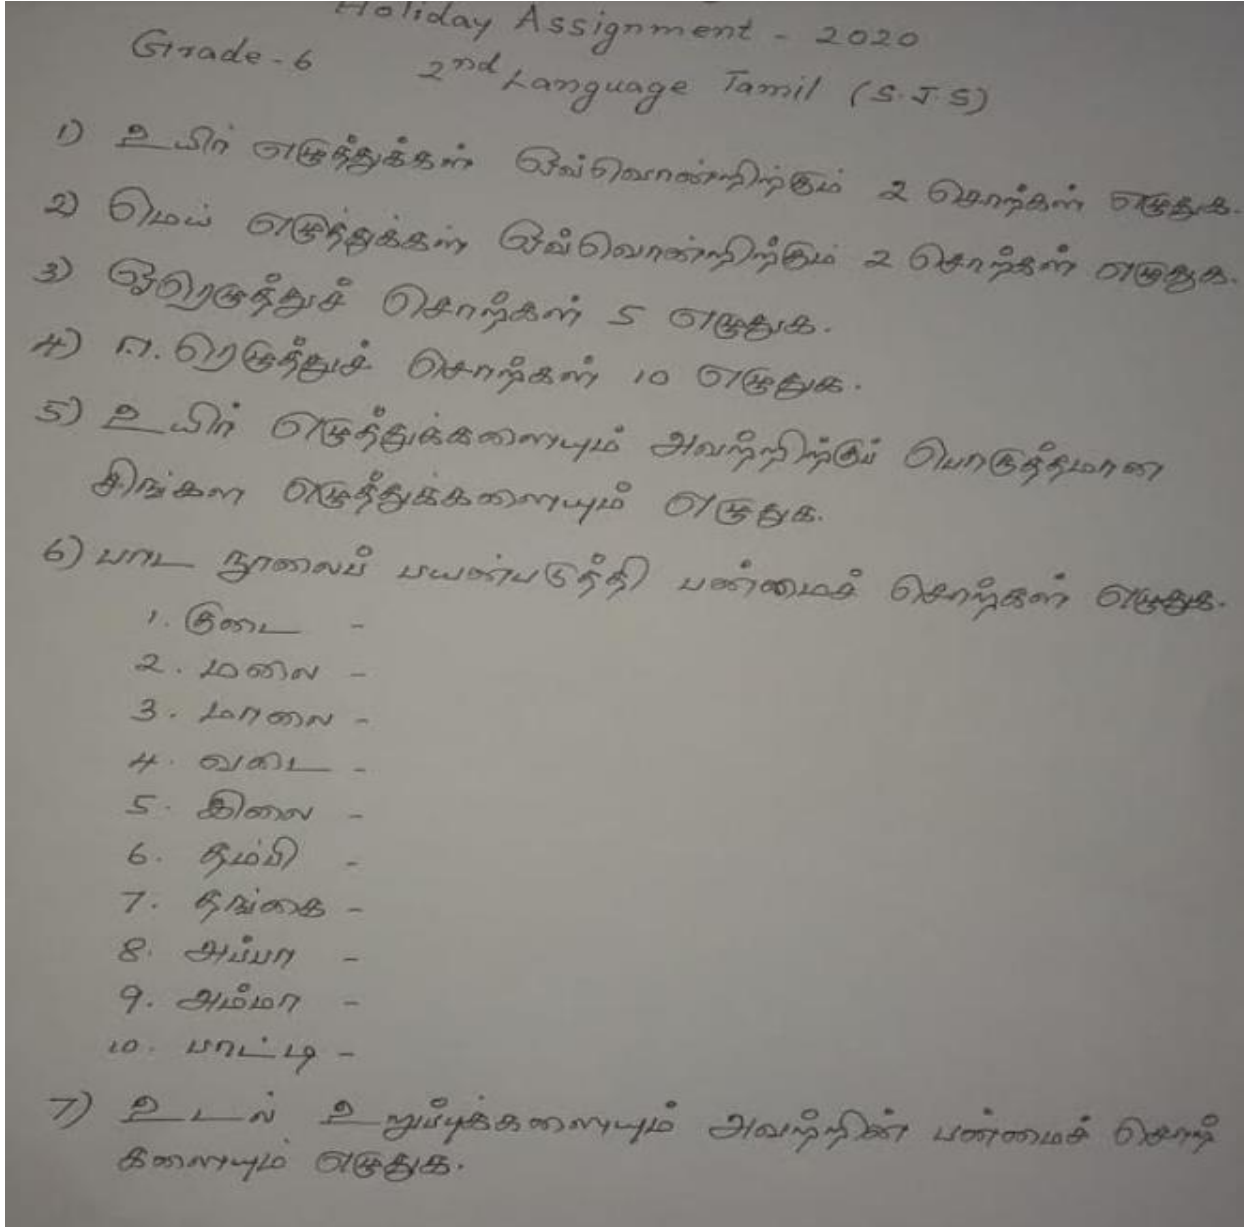 Holiday Assignment - 2020
Grade - 6 2nd Language Tamil (S.J.S)
1) உயிர் எழுத்துக்கள் ஒவ்வொன்றிற்கும் 2 சொற்கள் எழுதுக.
2) மெய் எழுத்துக்கள் ஒவ்வொன்றிற்கும் 2 சொற்கள் எழுதுக.
3) ஓரெழுத்துச் சொற்கள் 5 எழுதுக.
4) ஈ.ரெழுத்துச் சொற்கள் 10 எழுதுக.
5) உயிர் எழுத்துக்களையும் அவற்றிற்குப் பொருத்தமான
சிங்கள எழுத்துக்களையும் எழுதுக.
6) பாட நூலைப் பயன்படுத்தி பன்மைச் சொற்கள் எழுதுக.
1. குடை -
2. மலை -
3. மாலை -
4. வடை -
5. இலை -
6. தம்பி -
7. தங்கை -
8. அப்பா -
9. அம்மா -
10. பாட்டி -
7) உடல் உறுப்புக்களையும் அவற்றின் பன்மைச் சொற்
களையும் எழுதுக.